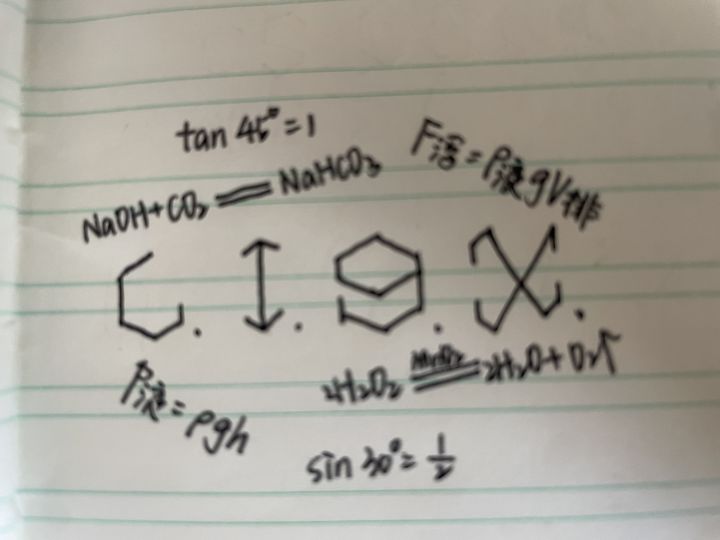 tan 45°=1
F浮=ρ液gV排
NaOH+CO₂═NaHCO₃
C.I.9.X.
P液=ρgh
2H₂O₂ MnO₂═ 2H₂O+O₂↑
sin 30°=1/2